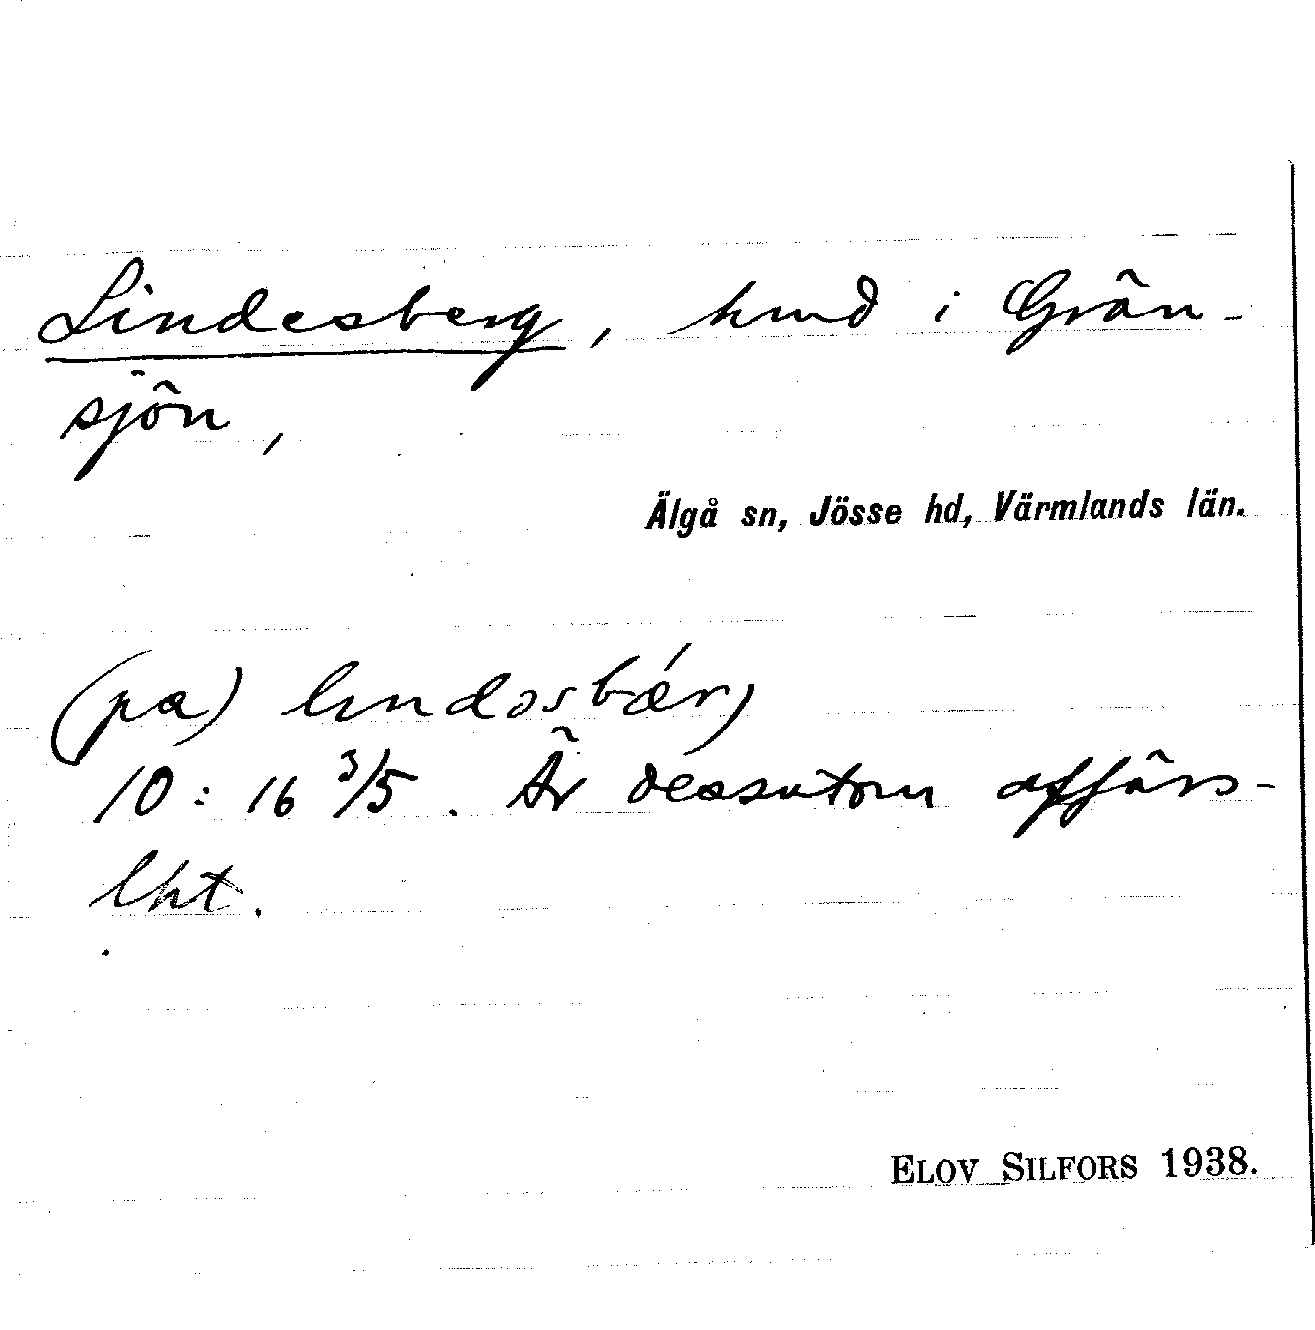 Lindesberg, hmd i Grän-
sjön,
Älgå sn, Jösse hd, Värmlands län.
(pa) lındəsbǽr)
10:16 3/5. Är dessutom affärs-
lht.
ELOV SILFORS 1938.